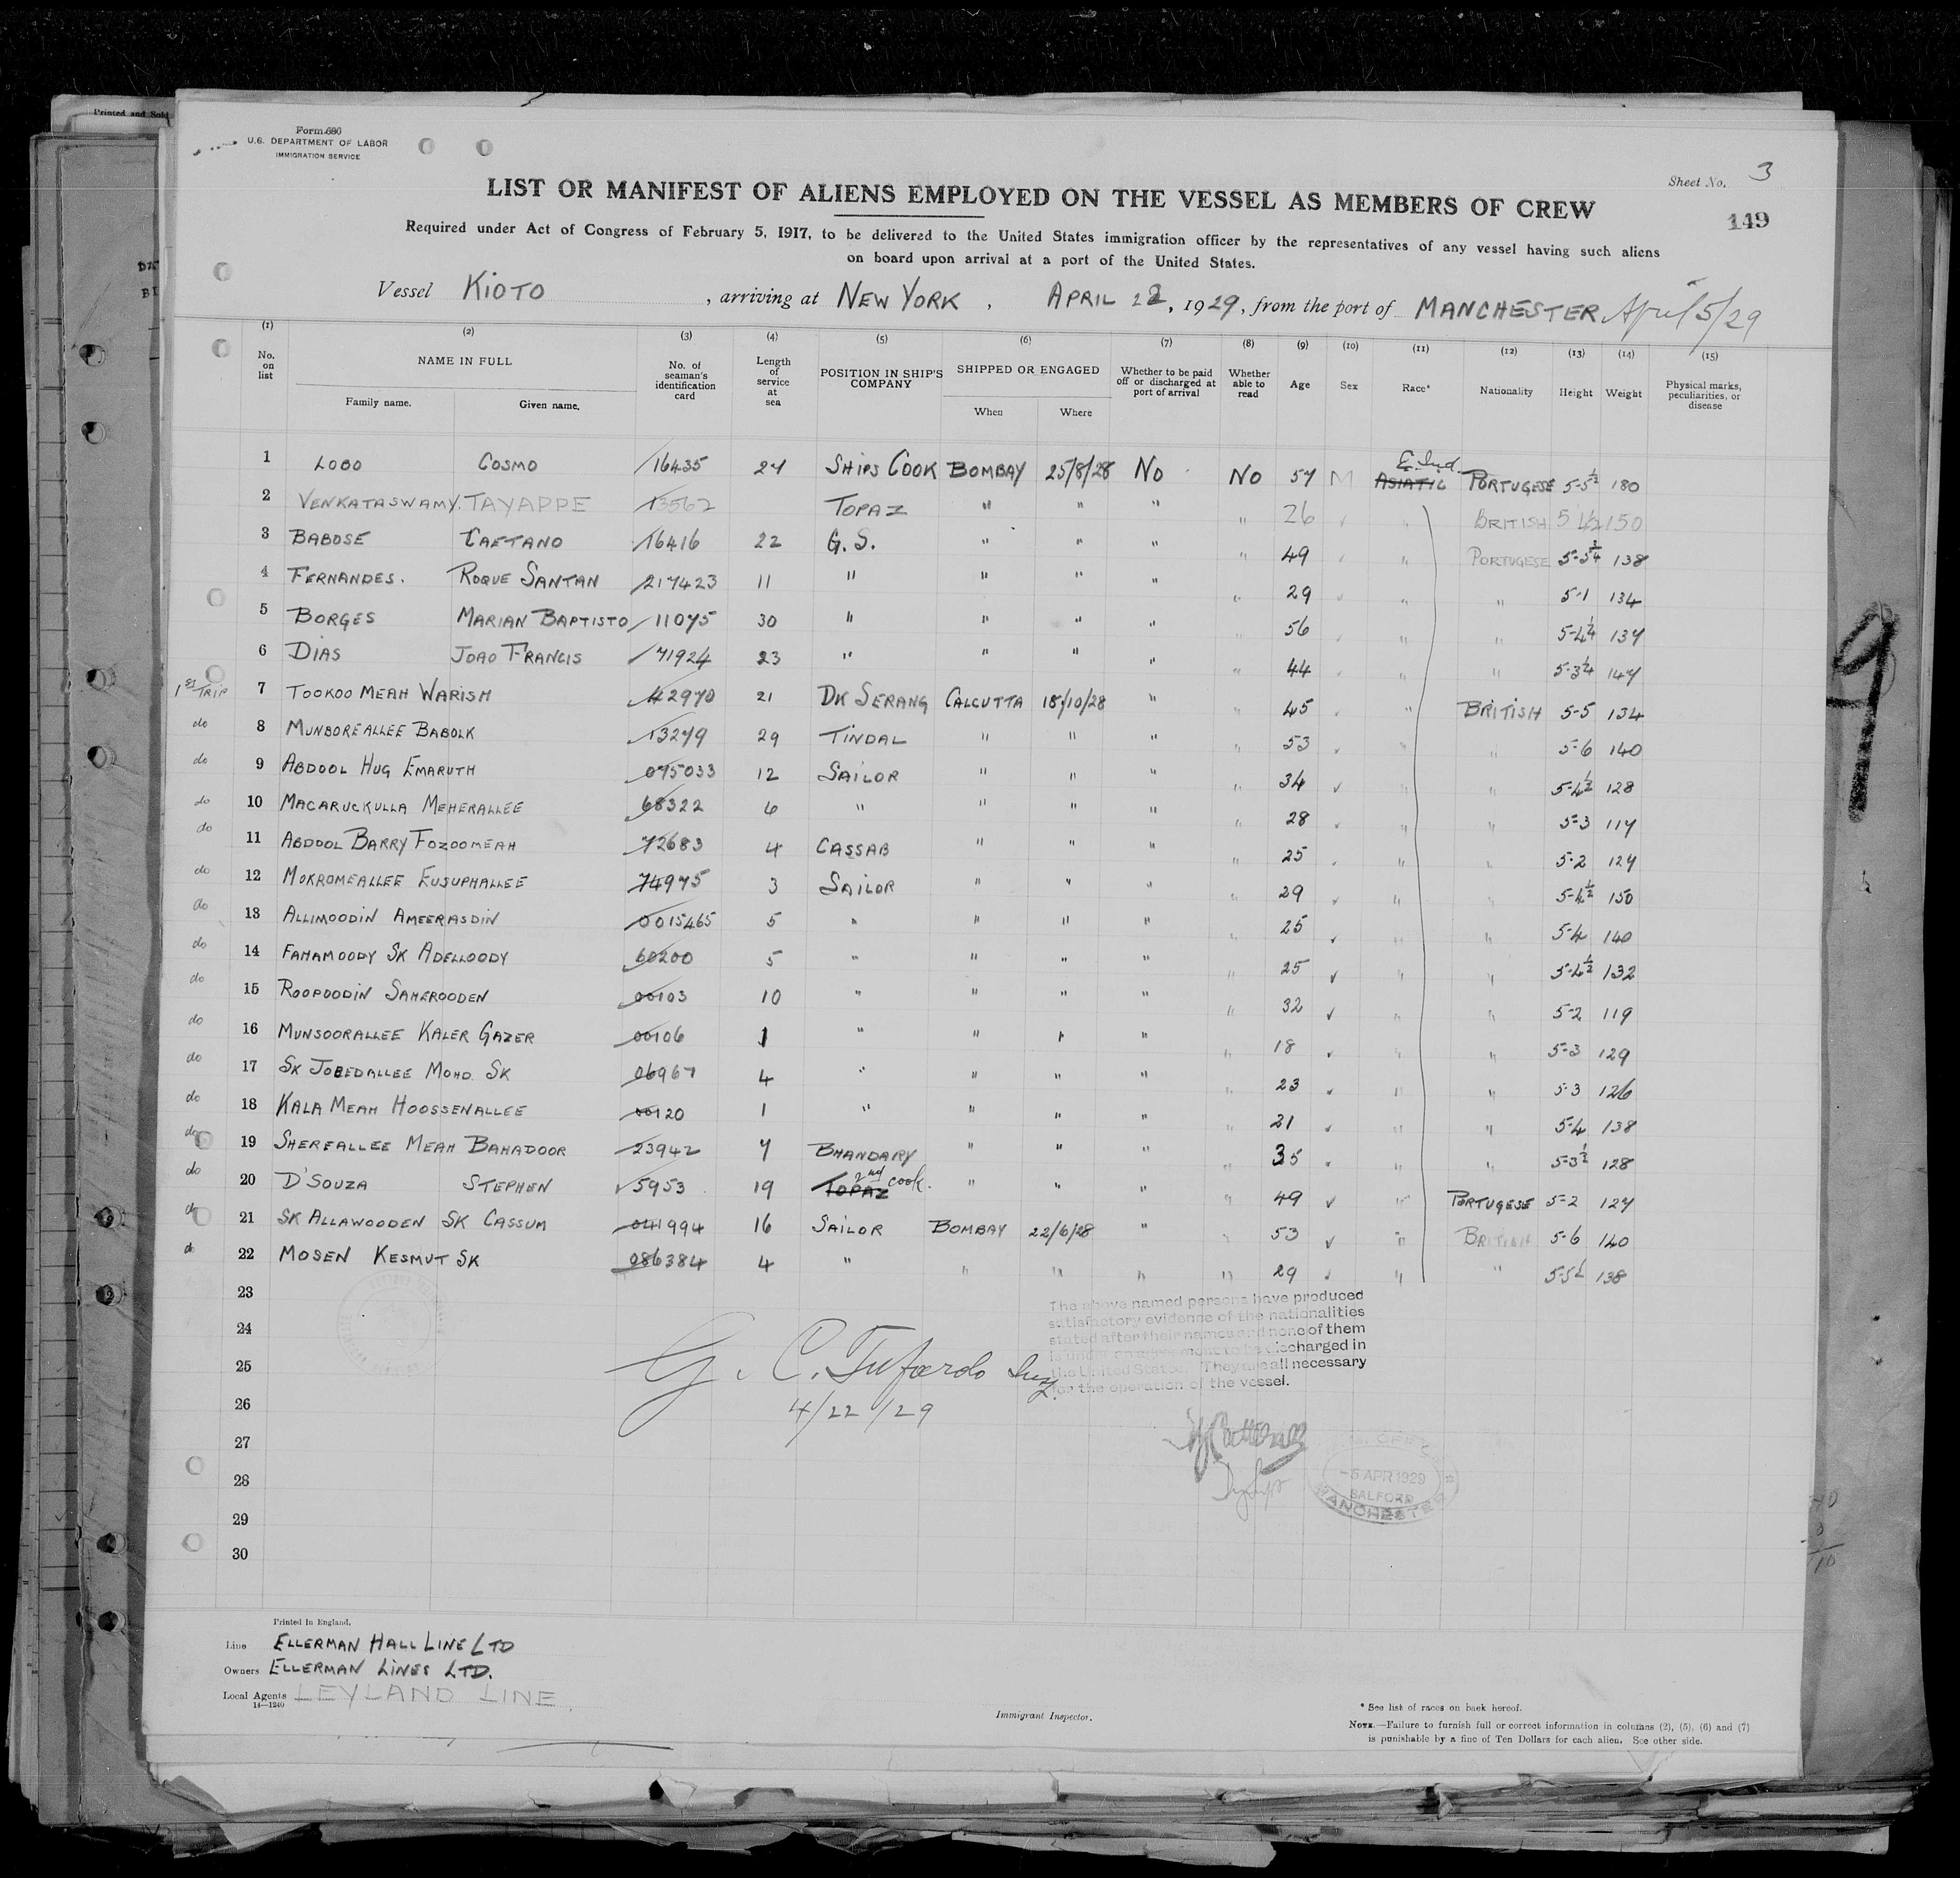 Printed and Sold
Form 686
U.S. DEPARTMENT OF LABOR
IMMIGRATION SERVICE
Sheet No. 3
149
LIST OR MANIFEST OF ALIENS EMPLOYED ON THE VESSEL AS MEMBERS OF CREW
Required under Act of Congress of February 5, 1917, to be delivered to the United States immigration officer by the representatives of any vessel having such aliens
on board upon arrival at a port of the United States.
Vessel KIOTO, arriving at NEW YORK, APRIL 22, 1929, from the port of MANCHESTER April 5/29
(1) (2) (3) (4) (5) (6) (7) (8) (9) (10) (11) (12) (13) (14) (15)
No. on list NAME IN FULL Family name. Given name. No. of seaman's identification card Length of service at sea POSITION IN SHIP'S COMPANY SHIPPED OR ENGAGED When Where Whether to be paid off or discharged at port of arrival Whether able to read Age Sex Race* Nationality Height Weight Physical marks, peculiarities, or disease
1 LOBO COSMO 16435 27 SHIPS COOK BOMBAY 25/8/28 NO NO 57 M E. Ind. ASIATIC PORTUGESE 5-5½ 180
2 VENKATASWAMY. TAYAPPE 13562 TOPAZ " " " " 26 " BRITISH 5 4½ 150
3 BABOSE CAETANO 16416 22 G.S. " " " " 49 " PORTUGESE 5-5¼ 138
4 FERNANDES. ROQUE SANTAN 217423 11 " " " " " 29 " " 5-1 134
5 BORGES MARIAN BAPTISTO 11075 30 " " " " " 56 " " 5-4¼ 137
6 DIAS JOAO FRANCIS 71924 23 " " " " " 44 " " 5-3½ 147
1st TRIP 7 TOOKOO MEAH WARISH 42970 21 DK SERANG CALCUTTA 18/10/28 " " 45 " BRITISH 5-5 134
do 8 MUNBOREALLEE BABOLK 13279 29 TINDAL " " " " 53 " " 5-6 140
do 9 ABDOOL HUG EMARUTH 075033 12 SAILOR " " " " 34 " " 5-4½ 128
do 10 MACARUCKULLA MEHERALLEE 68322 6 " " " " " 28 " " 5-3 117
do 11 ABDOOL BARRY FOZOOMEAH 72683 4 CASSAB " " " " 25 " " 5-2 127
do 12 MOKROMEALLEE EUSUPHALLEE 74975 3 SAILOR " " " " 29 " " 5-4½ 150
do 13 ALLIMOODIN AMEERASDIN 0015465 5 " " " " " 25 " " 5-4 140
do 14 FAHAMOODY SK ADELLOODY 60200 5 " " " " " 25 " " 5-4½ 132
do 15 ROOPOODIN SAHEROODEN 00103 10 " " " " " 32 " " 5-2 119
do 16 MUNSOORALLEE KALER GAZER 00106 1 " " " " " 18 " " 5-3 129
do 17 SK JOBEDALLEE MOHD. SK 06967 4 " " " " " 23 " " 5-3 126
do 18 KALA MEAH HOOSSENALLEE 00120 1 " " " " " 21 " " 5-4 138
do 19 SHEREALLEE MEAH BAHADOOR 23942 7 BHANDARY " " " " 35 " " 5-3½ 128
do 20 D'SOUZA STEPHEN 5953 19 TOPAZ 2nd cook. " " " " 49 " PORTUGESE 5-2 127
do 21 SK ALLAWOODEN SK CASSUM 041994 16 SAILOR BOMBAY 22/6/28 " " 53 " BRITISH 5-6 140
do 22 MOSEN KESMUT SK 086384 4 " " " " " 29 " " 5-5½ 138
23
24
25
26
27
28
29
30
The above named persons have produced
satisfactory evidence of the nationalities
stated after their names and none of them
is under an agreement to be discharged in
the United States. They are all necessary
for the operation of the vessel.
4/22/29
-5 APR 1929
MANCHESTER
Printed in England.
Line ELLERMAN HALL LINE LTD
Owners ELLERMAN LINES LTD.
Local Agents LEYLAND LINE
14—1240
Immigrant Inspector.
* See list of races on back hereof.
NOTE.—Failure to furnish full or correct information in columns (2), (5), (6) and (7)
is punishable by a fine of Ten Dollars for each alien. See other side.